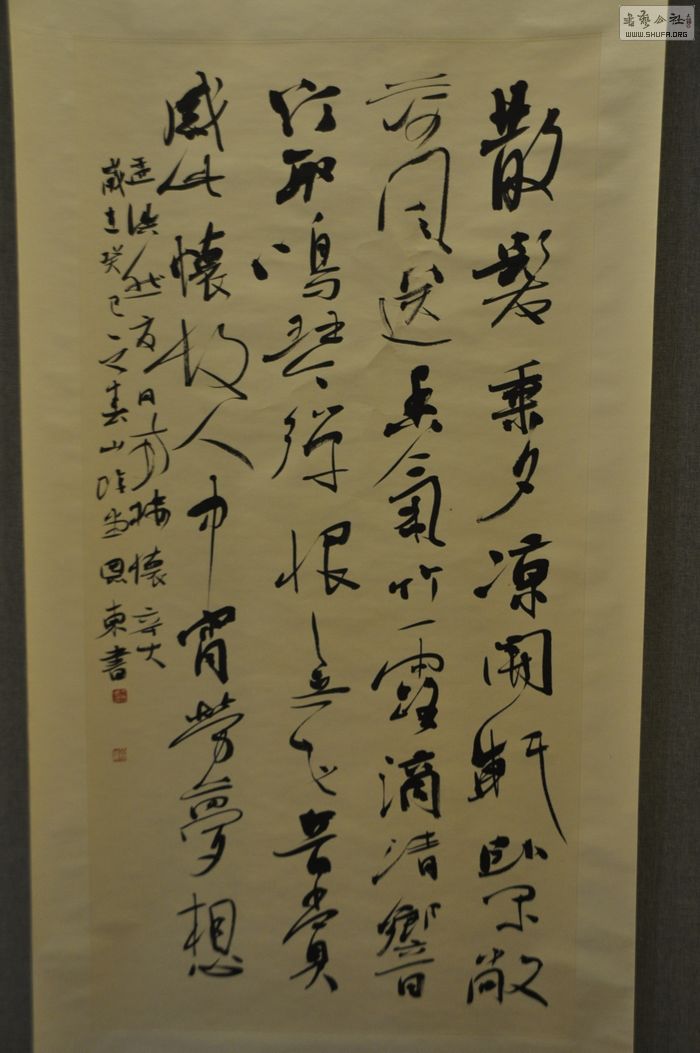 散髮乘夕凉開軒卧閑敞
荷風送香氣竹露滴清響
欲取鳴琴彈恨無知音賞
感此懷故人中宵勞夢想
孟浩然夏日南樓懷辛大
歲在癸巳之春山陰恩東書
書藝公社
WWW.SHUFA.ORG